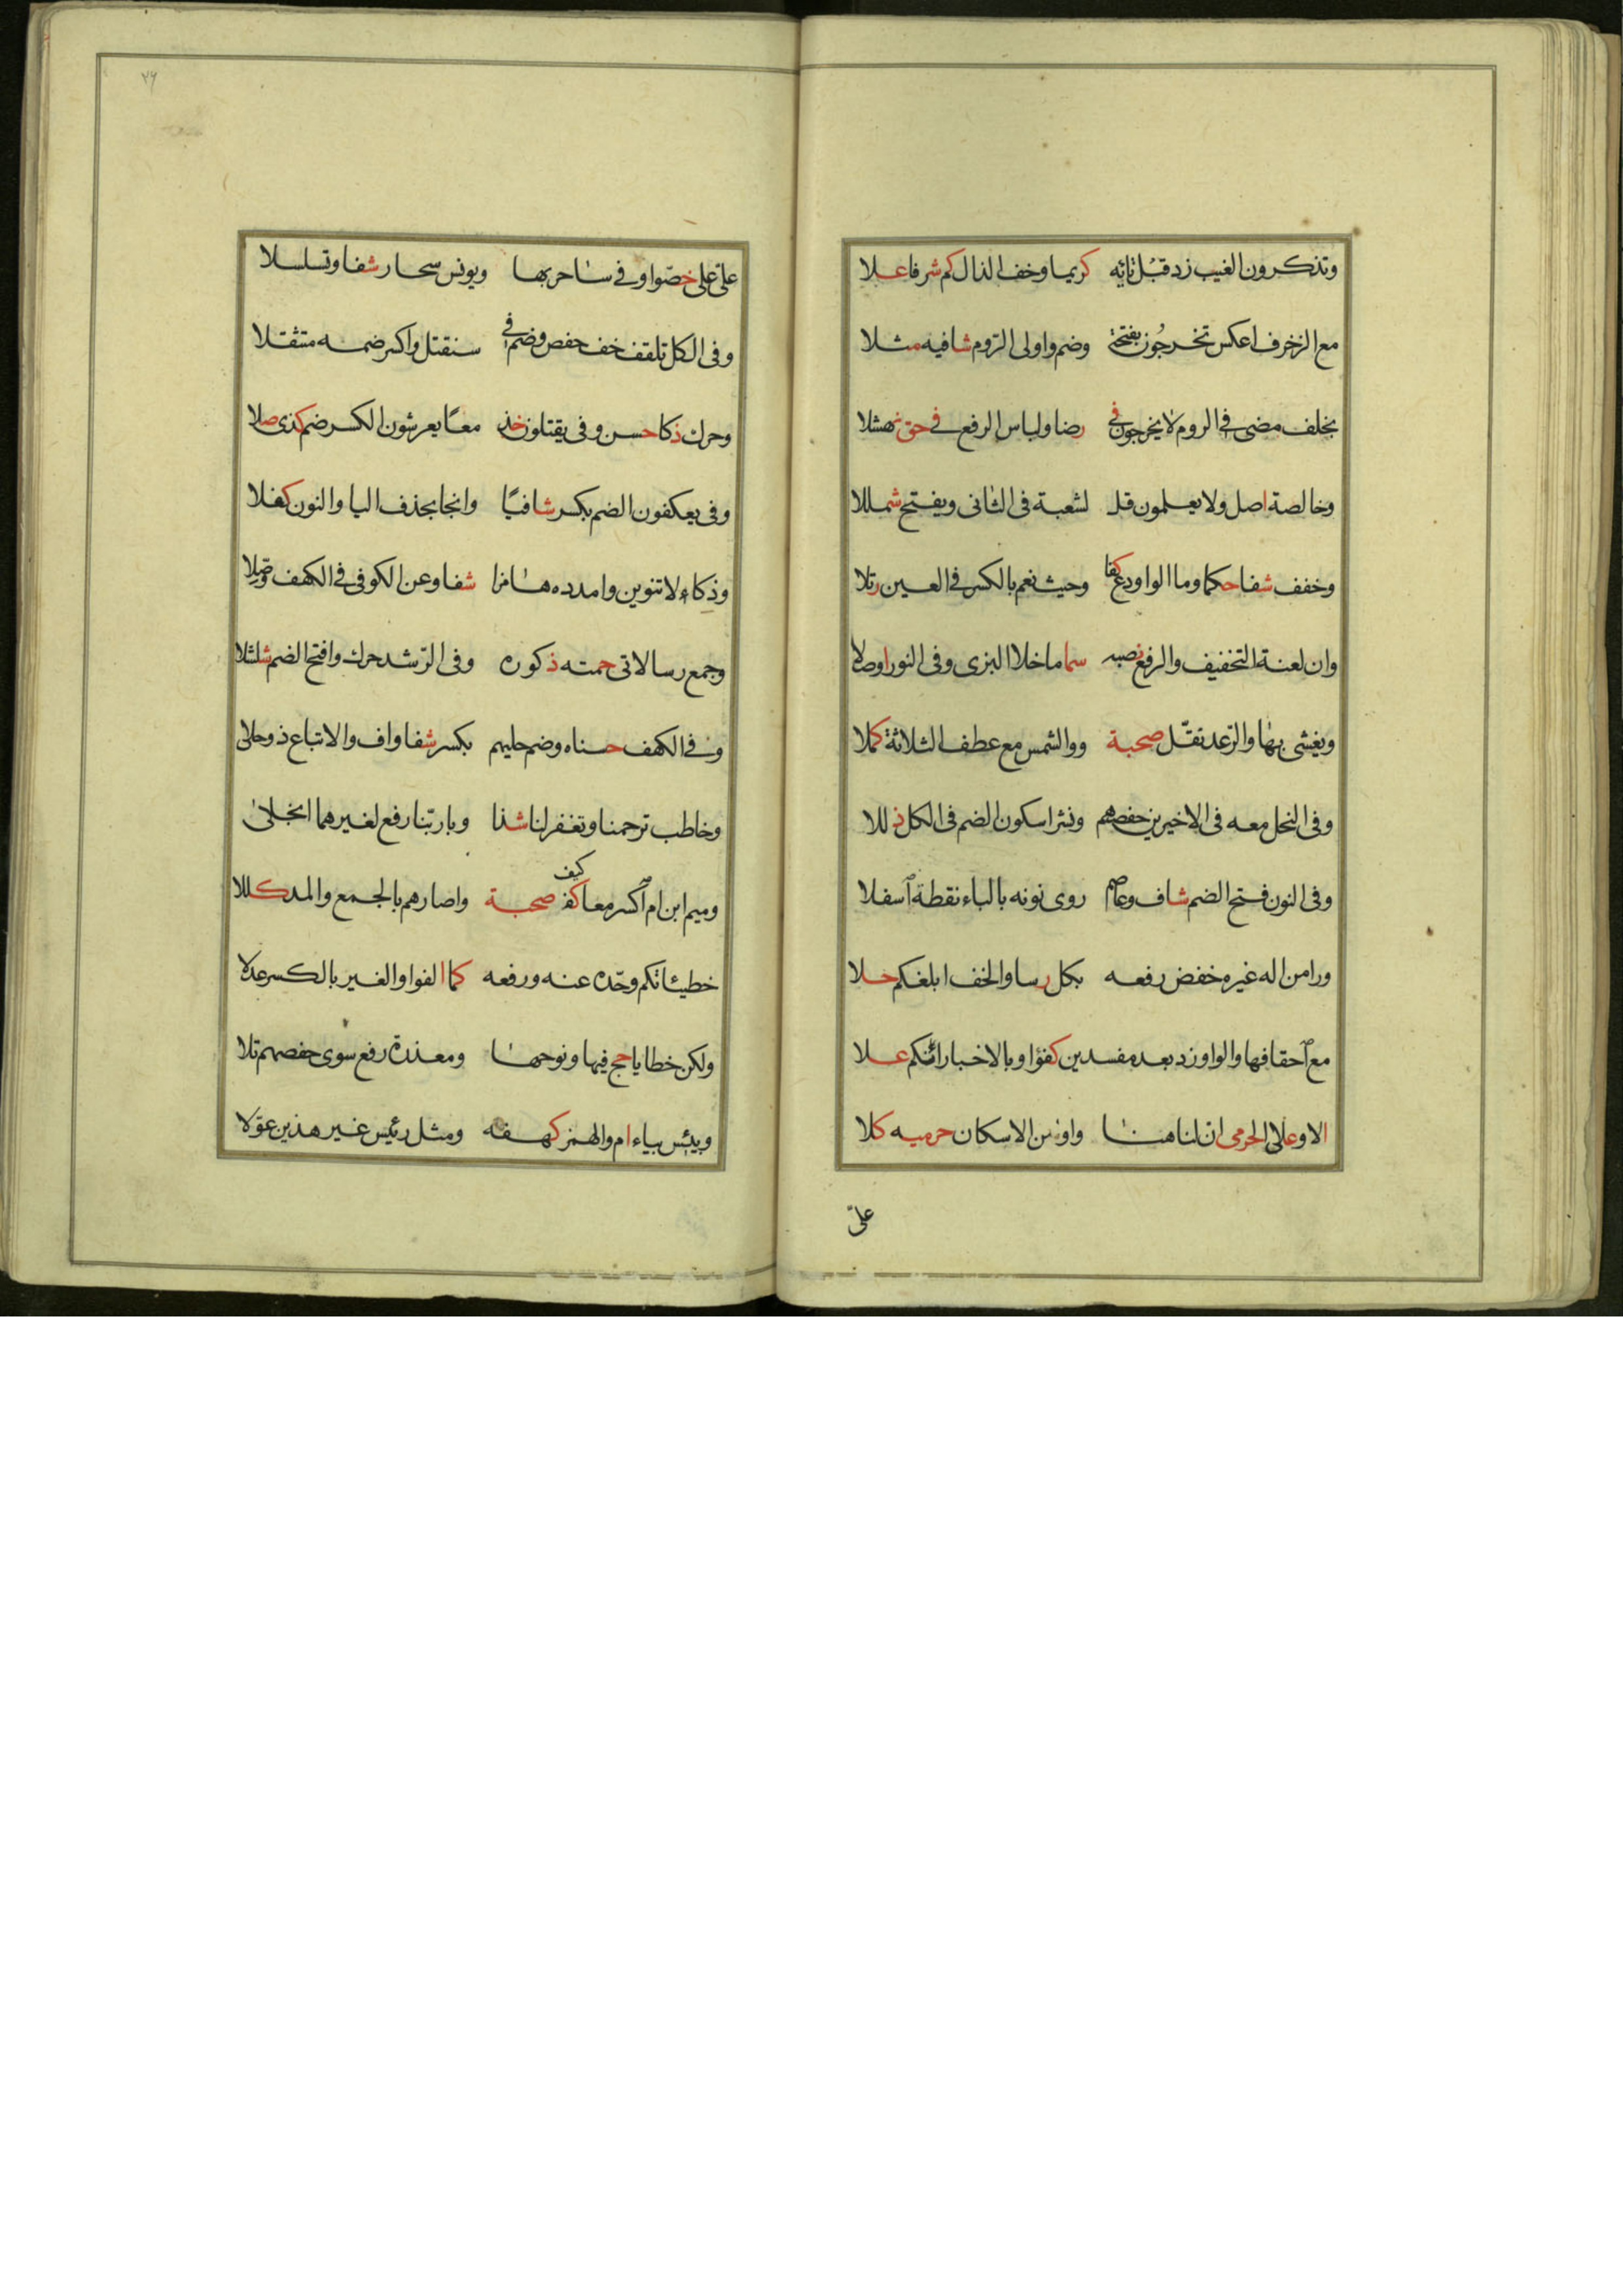 وتذكرون الغيب زد قبل تائه كريما وخف الذال كم شرفا علا
مع الزخرف اعكس تخرجون بفتحة وضم واولى الروم شافيه مثلا
بخلف مضى في الروم لا يخرجون في رضا ولباس الرفع في حق نهشلا
وخالصة اصل ولا يعلمون قل لشعبة في الثاني ويفتح شمللا
وخفف شفا حكما وما الواو دع كفا وحيث نعم بالكسر في العين رتلا
وان لعنة التخفيف والرفع نصبه سما ما خلا البزى وفى النور اوصلا
ويغشى بها والرعد ثقّل صحبة ووالشمس مع عطف الثلاثة كملا
وفى النحل معه فى الاخيرين حفصهم ونشرا سكون الضم فى الكل ذللا
وفى النون فتح الضم شاف وعاصم روى نونه بالباء نقطة اسفلا
ورا من اله غيره خفض رفعه بكل رسا والخف ابلغكم حلا
مع احقافها والواو زد بعد مفسدين كفؤا وبالاخبار ائنكم علا
الا وعلى الحرمى ان لنا هنا واو امن الاسكان حرميه كلا
علىّ
٧٦
علىّ على خصّوا وفي ساحر بها ويونس سحار شفا وتسلسلا
وفى الكل تلقف خف حفص وضم في سنقتل واكسر ضمه متثقلا
وحرك ذكا حسن وفى يقتلون خذ معًا يعرشون الكسر ضم كذى صلا
وفى يعكفون الضم يكسر شافيًا وانجا بحذف اليا والنون كفلا
ودكاء لا تنوين وامدده هامزا شفا وعن الكوفى في الكهف وصّلا
وجمع رسالاتى حمته ذكوره وفى الرّشد حرك وافتح الضم شلشلا
وفي الكهف حسناه وضم حليهم بكسر شفا واف والاتباع ذو حلى
وخاطب ترحمنا وتغفر لنا شذا وبا ربّنا رفع لغيرهما انجلى
وميم ابن ام اكسر معا كفؤ صحبة واصارهم بالجمع والمد كللا
كيف
خطيئاتكم وحّده عنه ورفعه كما الفوا والغير بالكسر عدلا
ولكن خطايا حج فيها ونوحها ومعذرة رفع سوى حفصهم تلا
وبيئس بياء ام والهمز كهفه ومثل رئيس غير هذين عوّلا